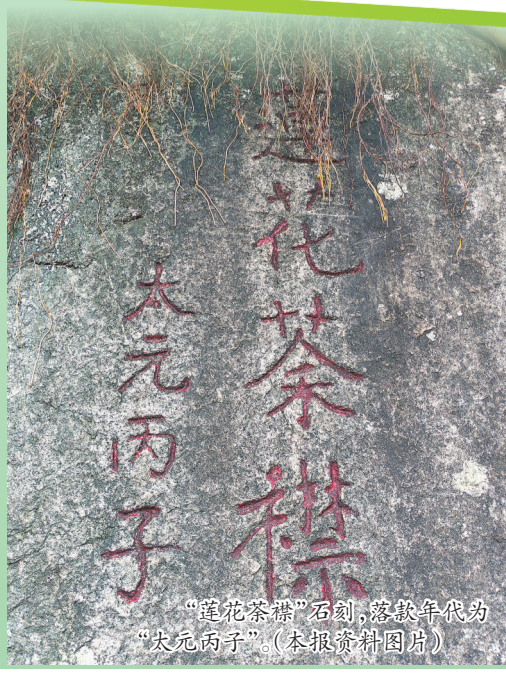 蓮花荼襟
太元丙子
“莲花荼襟”石刻，落款年代为
“太元丙子”。（本报资料图片）